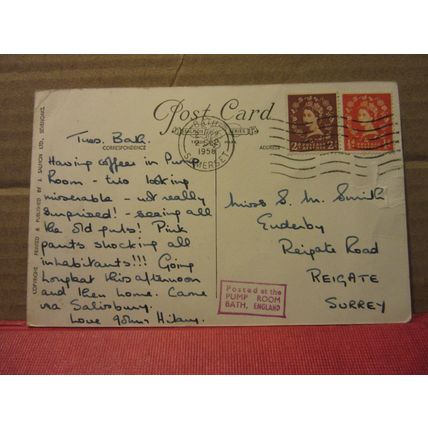 Post Card
CORRESPONDENCE
ADDRESS
COPYRIGHT PRINTED & PUBLISHED BY J. SALMON LTD., SEVENOAKS
BATH
2 SEP
1958
SOMERSET
Tues. Bath.
Having coffee in Pump
Room - two looking
miserable - not really
surprised! - seeing all
the old guts! Pink
pants shocking all
inhabitants!!! Going
Longleat this afternoon
and then home. Came
via Salisbury.
Love John & Hilary.
Miss S. M. Smith
Enderby
Reigate Road
REIGATE
SURREY
Posted at the
PUMP ROOM
BATH, ENGLAND